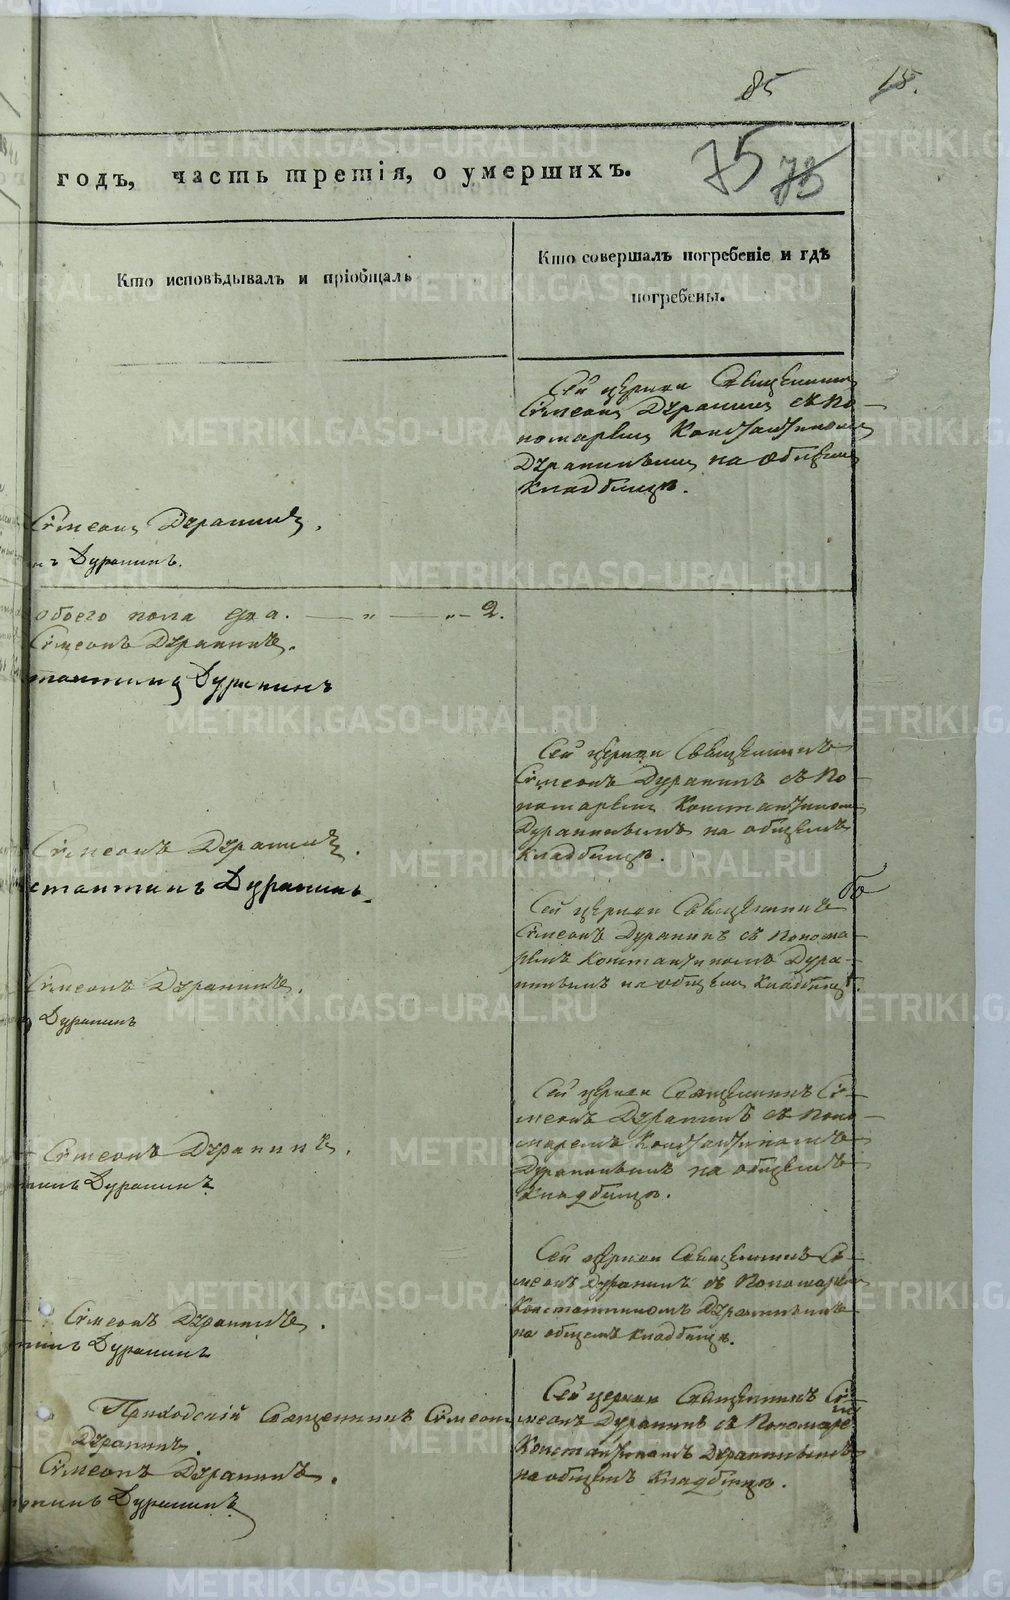 85 15.
75 73
годъ, часть третія, о умершихъ.
Кто исповѣдывалъ и пріобщалъ
Кто совершалъ погребеніе и гдѣ
погребены.
Сей церкви Священникъ
Симеонъ Дуранинъ съ По-
номаремъ Константиномъ
Дуранинымъ на общемъ
кладбищѣ.
Симеонъ Дуранинъ.
нъ Дуранинъ.
обоего пола два. — „ — „ — 2.
Симеонъ Дуранинъ.
тантинъ Дуранинъ
Сей церкви Священникъ
Симеонъ Дуранинъ съ По-
номаремъ Константиномъ
Дуранинымъ на общемъ
кладбищѣ.
Симеонъ Дуранинъ.
стантинъ Дуранинъ.
Сей церкви Священникъ
Симеонъ Дуранинъ съ Понома-
ремъ Константиномъ Дура-
нинымъ на общемъ кладбищѣ.
Симеонъ Дуранинъ.
Дуранинъ
Сей церкви Священникъ Си-
меонъ Дуранинъ съ Поно-
маремъ Константиномъ
Дуранинымъ на общемъ
кладбищѣ.
Симеонъ Дуранинъ.
тинъ Дуранинъ
Сей церкви Священникъ Си-
меонъ Дуранинъ съ Пономаремъ
Константиномъ Дуранинымъ
на общемъ кладбищѣ.
Симеонъ Дуранинъ.
тинъ Дуранинъ
Приходскій Священникъ Симеонъ
Дуранинъ.
Сей церкви Священникъ Си-
меонъ Дуранинъ съ Пономаремъ
Константиномъ Дуранинымъ
на общемъ кладбищѣ.
Симеонъ Дуранинъ.
тинъ Дуранинъ
METRIKI.GASO-URAL.RU